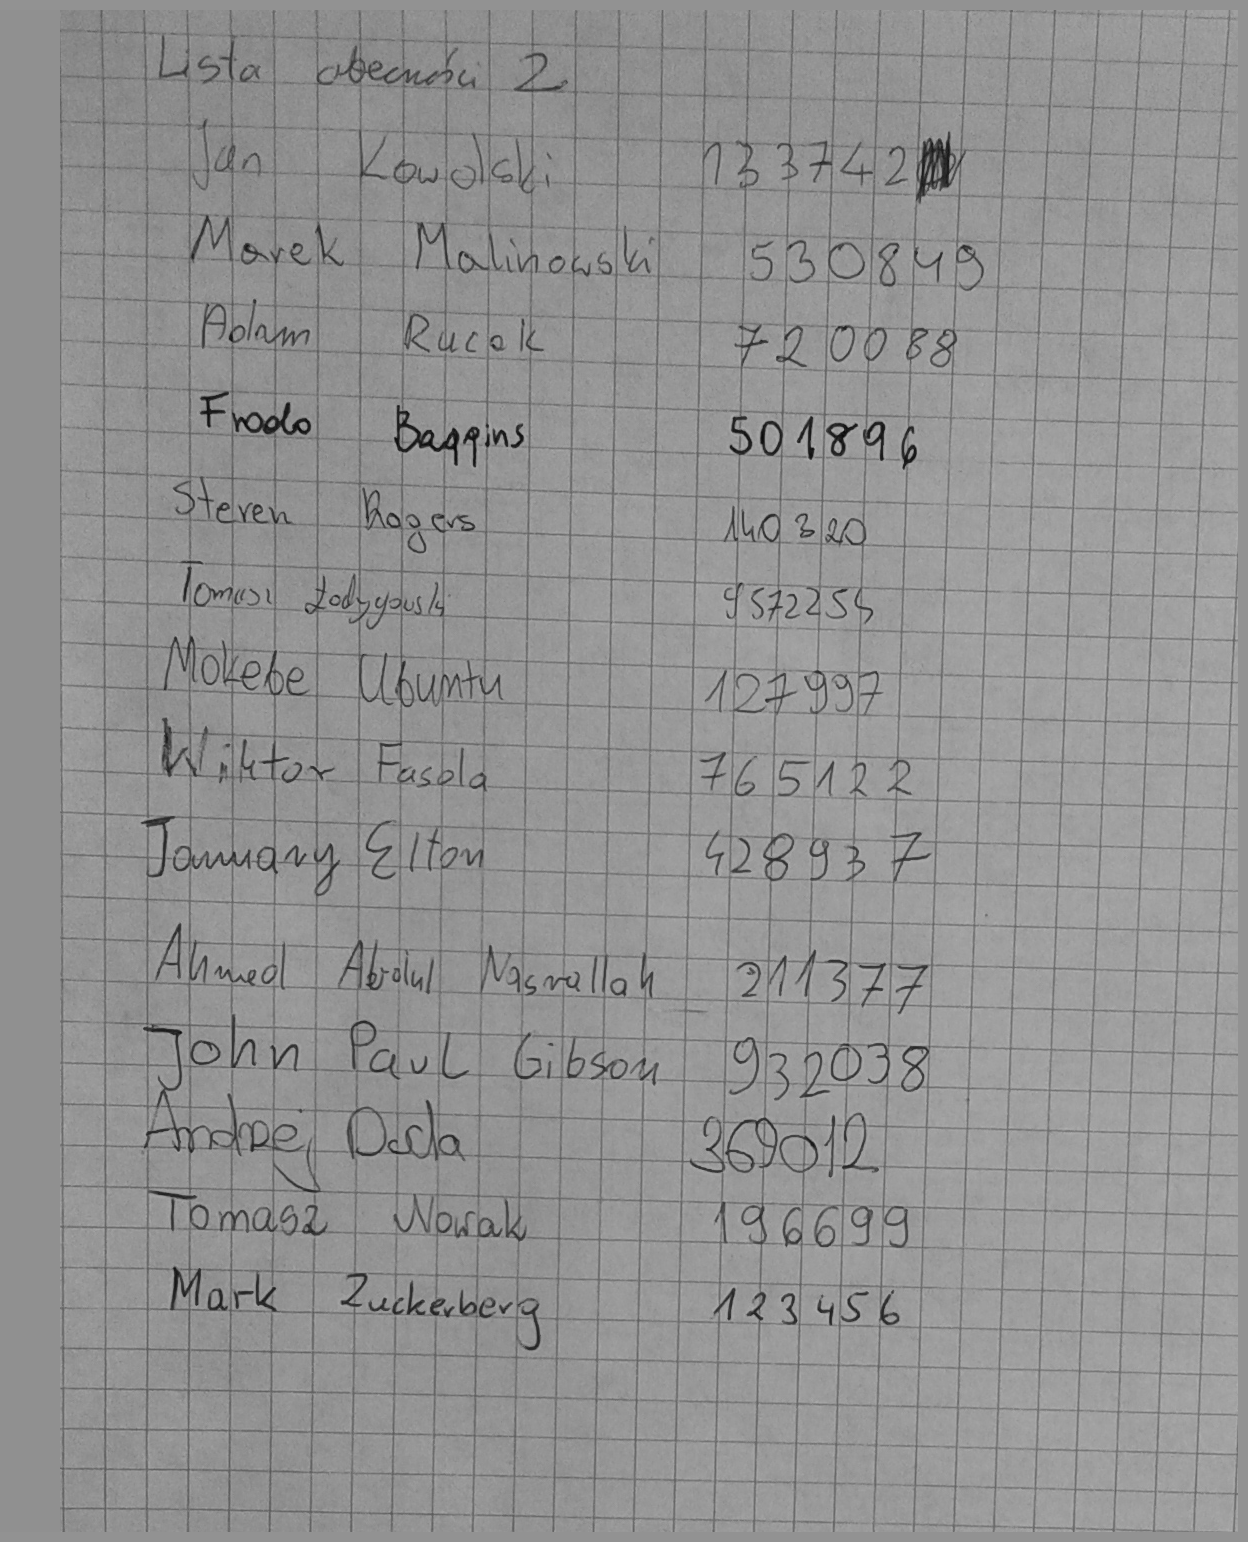 Lista obecności 2
Jan Kowalski 133742
Marek Malinowski 530849
Adam Rucok 720088
Frodo Baggins 501896
Steven Rogers 140320
Tomasz Łodygowski 9572255
Mokebe Ubuntu 127997
Wiktor Fasola 765122
January Elton 428937
Ahmed Abdul Nasrallah 211377
John Paul Gibson 932038
Andrzej Dada 369012
Tomasz Nowak 196699
Mark Zuckerberg 123456